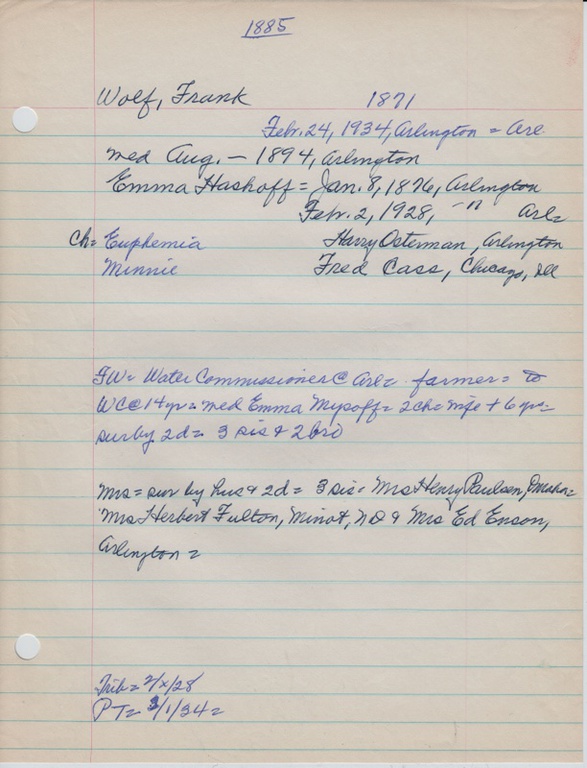 1885
Wolf, Frank 1871
Feb. 24, 1934, Arlington = Arl
med Aug. — 1894, Arlington
Emma Hashoff = Jan. 8, 1876, Arlington
Feb. 2, 1928, —" Arl=
Ch= Euphemia Harry Osterman, Arlington
Minnie Fred Cass, Chicago, Ill
FW= Water Commissioner @ Arl= farmer= to
WC@ 14 yr= med Emma = 2ch= wife + 6 yr=
sur by 2d= 3 sis & 2 bro
Mrs= sur by hus & 2d= 3 sis= Mrs Henry Paulsen, Omaha=
Mrs Herbert Fulton, Minot, ND & Mrs Ed Enson,
Arlington =
Trib= 2/x/28
PT= 3/1/34=